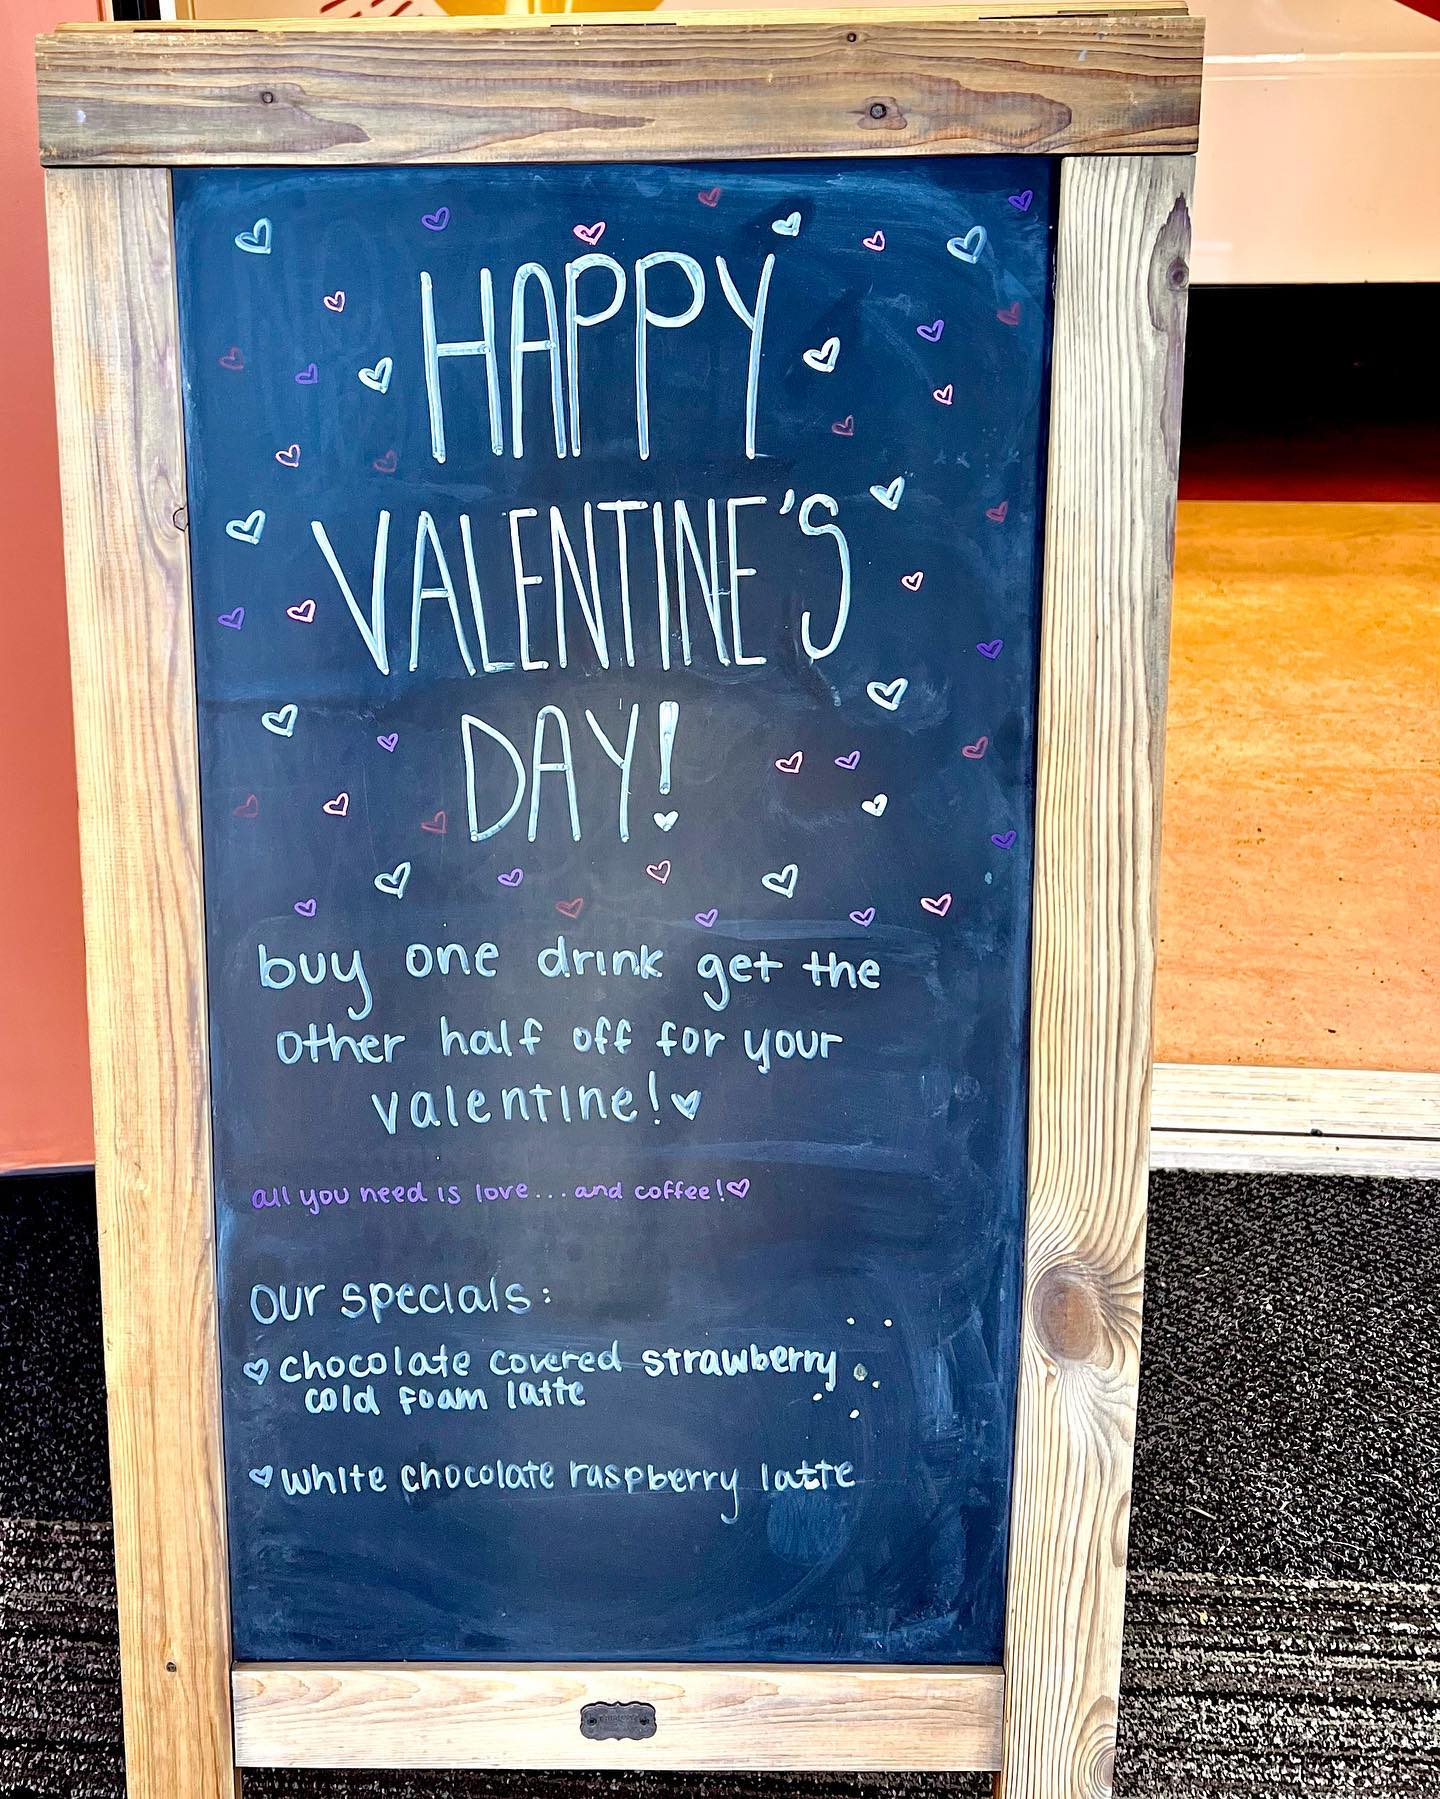 HAPPY
VALENTINE'S
DAY!
buy one drink get the
other half off for your
valentine!
all you need is love... and coffee!
our specials:
chocolate covered strawberry
cold foam latte
white chocolate raspberry latte